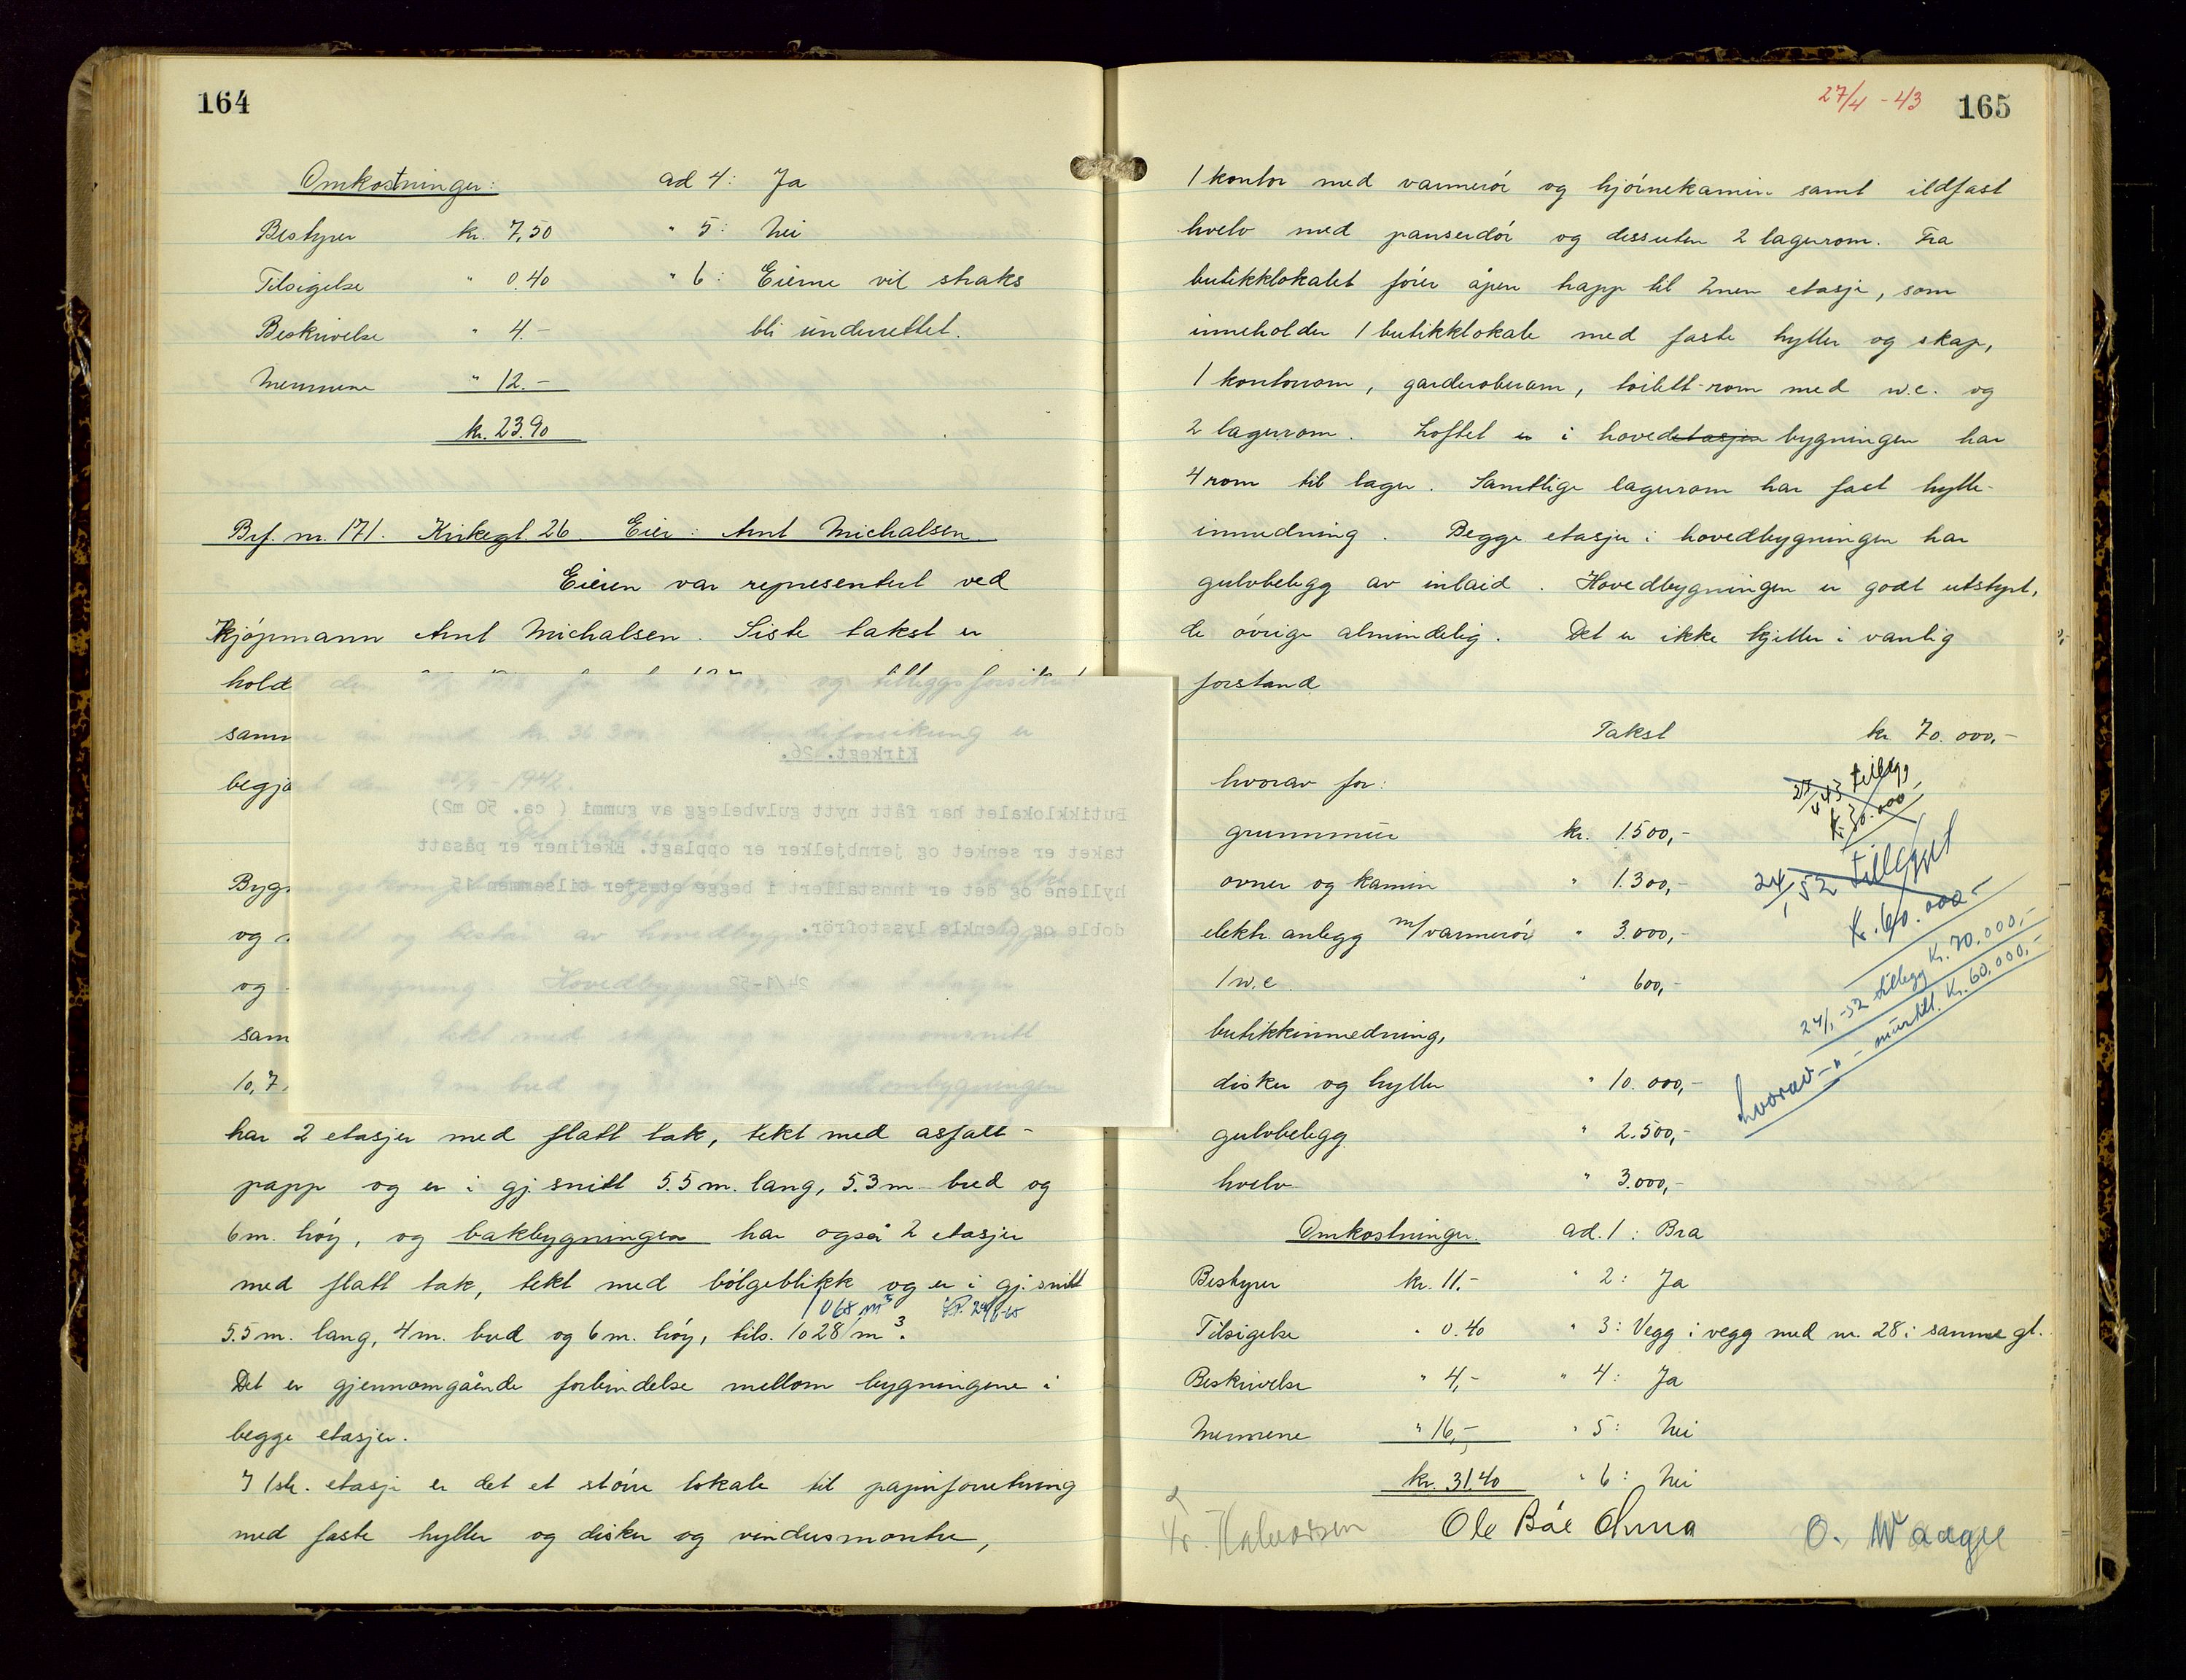 164
Omkostninger:
Bestyrer kr. 7,50
Tilsigelse " 0.40
Beskrivelse " 4.-
Mennene " 12.-
kr. 23.90
ad 4: Ja
" 5: Nei
" 6: Eierne vil straks
bli underrettet.
Brf. nr. 171. Kirkegt. 26. Eier: Arnt Michalsen
Eieren var representert ved
Kjøpmann Arnt Michalsen. Siste takst er
hold
samm
begjæ
Kirkegt. 26.
Butikklokalet har fått nytt gulvbelegg av gummi ( ca. 50 m2)
taket er senket og jernbjelker er opplagt. Ekefiner er påsatt
hyllene og det er innstallert i begge etasjer tilsammen 15
doble og 6 enkle lysstofrör.
24/1-52
Bygn
og
og
sam
10,7
har 2 etasjer med flatt tak, tekt med asfalt-
papp og er i gj.snitt 5.5 m. lang, 5.3 m bred og
6 m. høy, og bakbygningen har også 2 etasjer
med flatt tak, tekt med bølgeblikk og er i gj.snitt
1068 m³
5.5 m. lang, 4 m. bred og 6 m. høy, tils. 1028 m³.
Det er gjennomgående forbindelse mellom bygningene i
begge etasjer.
I 1ste. etasje er det et større lokale til papirforretning
med faste hyller og disker og vindusmontre,
27/4 - 43
165
1 kontor med varmerør og hjørnekamin samt ildfast
hvelv med panserdør og dessuten 2 lagerrom. Fra
butikklokalet fører åpen trapp til 2nen etasje, som
inneholder 1 butikklokale med faste hyller og skap,
1 kontorrom, garderoberom, toilett-rom med w.c. og
2 lagerrom. Loftet er i hovedetasjen bygningen har
4 rom til lager. Samtlige lagerrom har fast hylle-
innredning. Begge etasjer i hovedbygningen har
gulvbelegg av inlaid. Hovedbygningen er godt utstyrt,
de øvrige almindelig. Det er ikke kjeller i vanlig
forstand
Takst kr 70.000,-
hvorav for:
grunnmur kr. 1.500,-
ovner og kamin " 1.300,-
elektr. anlegg m/varmerør " 3.000,-
1 w.c. " 600,-
butikkinnredning,
disker og hyller " 10.000,-
gulvbelegg " 2.500,-
hvelv " 3.000,-
27/4 43 tillegg
Kr. 30.000
24/1 52 tillegget
Kr. 60.000-
24/1-52 tillegg Kr. 70.000,-
hvorav -"- murtill. Kr. 60.000,-
Omkostninger.
Bestyrer kr. 11.-
Tilsigelse " 0.40
Beskrivelse " 4,-
Mennene " 16,-
kr. 31.40
ad. 1: Bra
" 2: Ja
" 3: Vegg i vegg med nr. 28 i samme gt.
" 4: Ja
" 5: Nei
" 6: Nei
Halvorsen
Ole Bøe
O. Waage